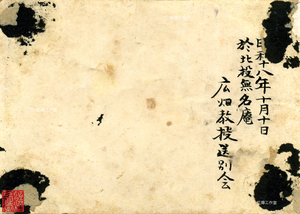 昭和十八年十月十日
於北投無名庵
広畑教授送別会